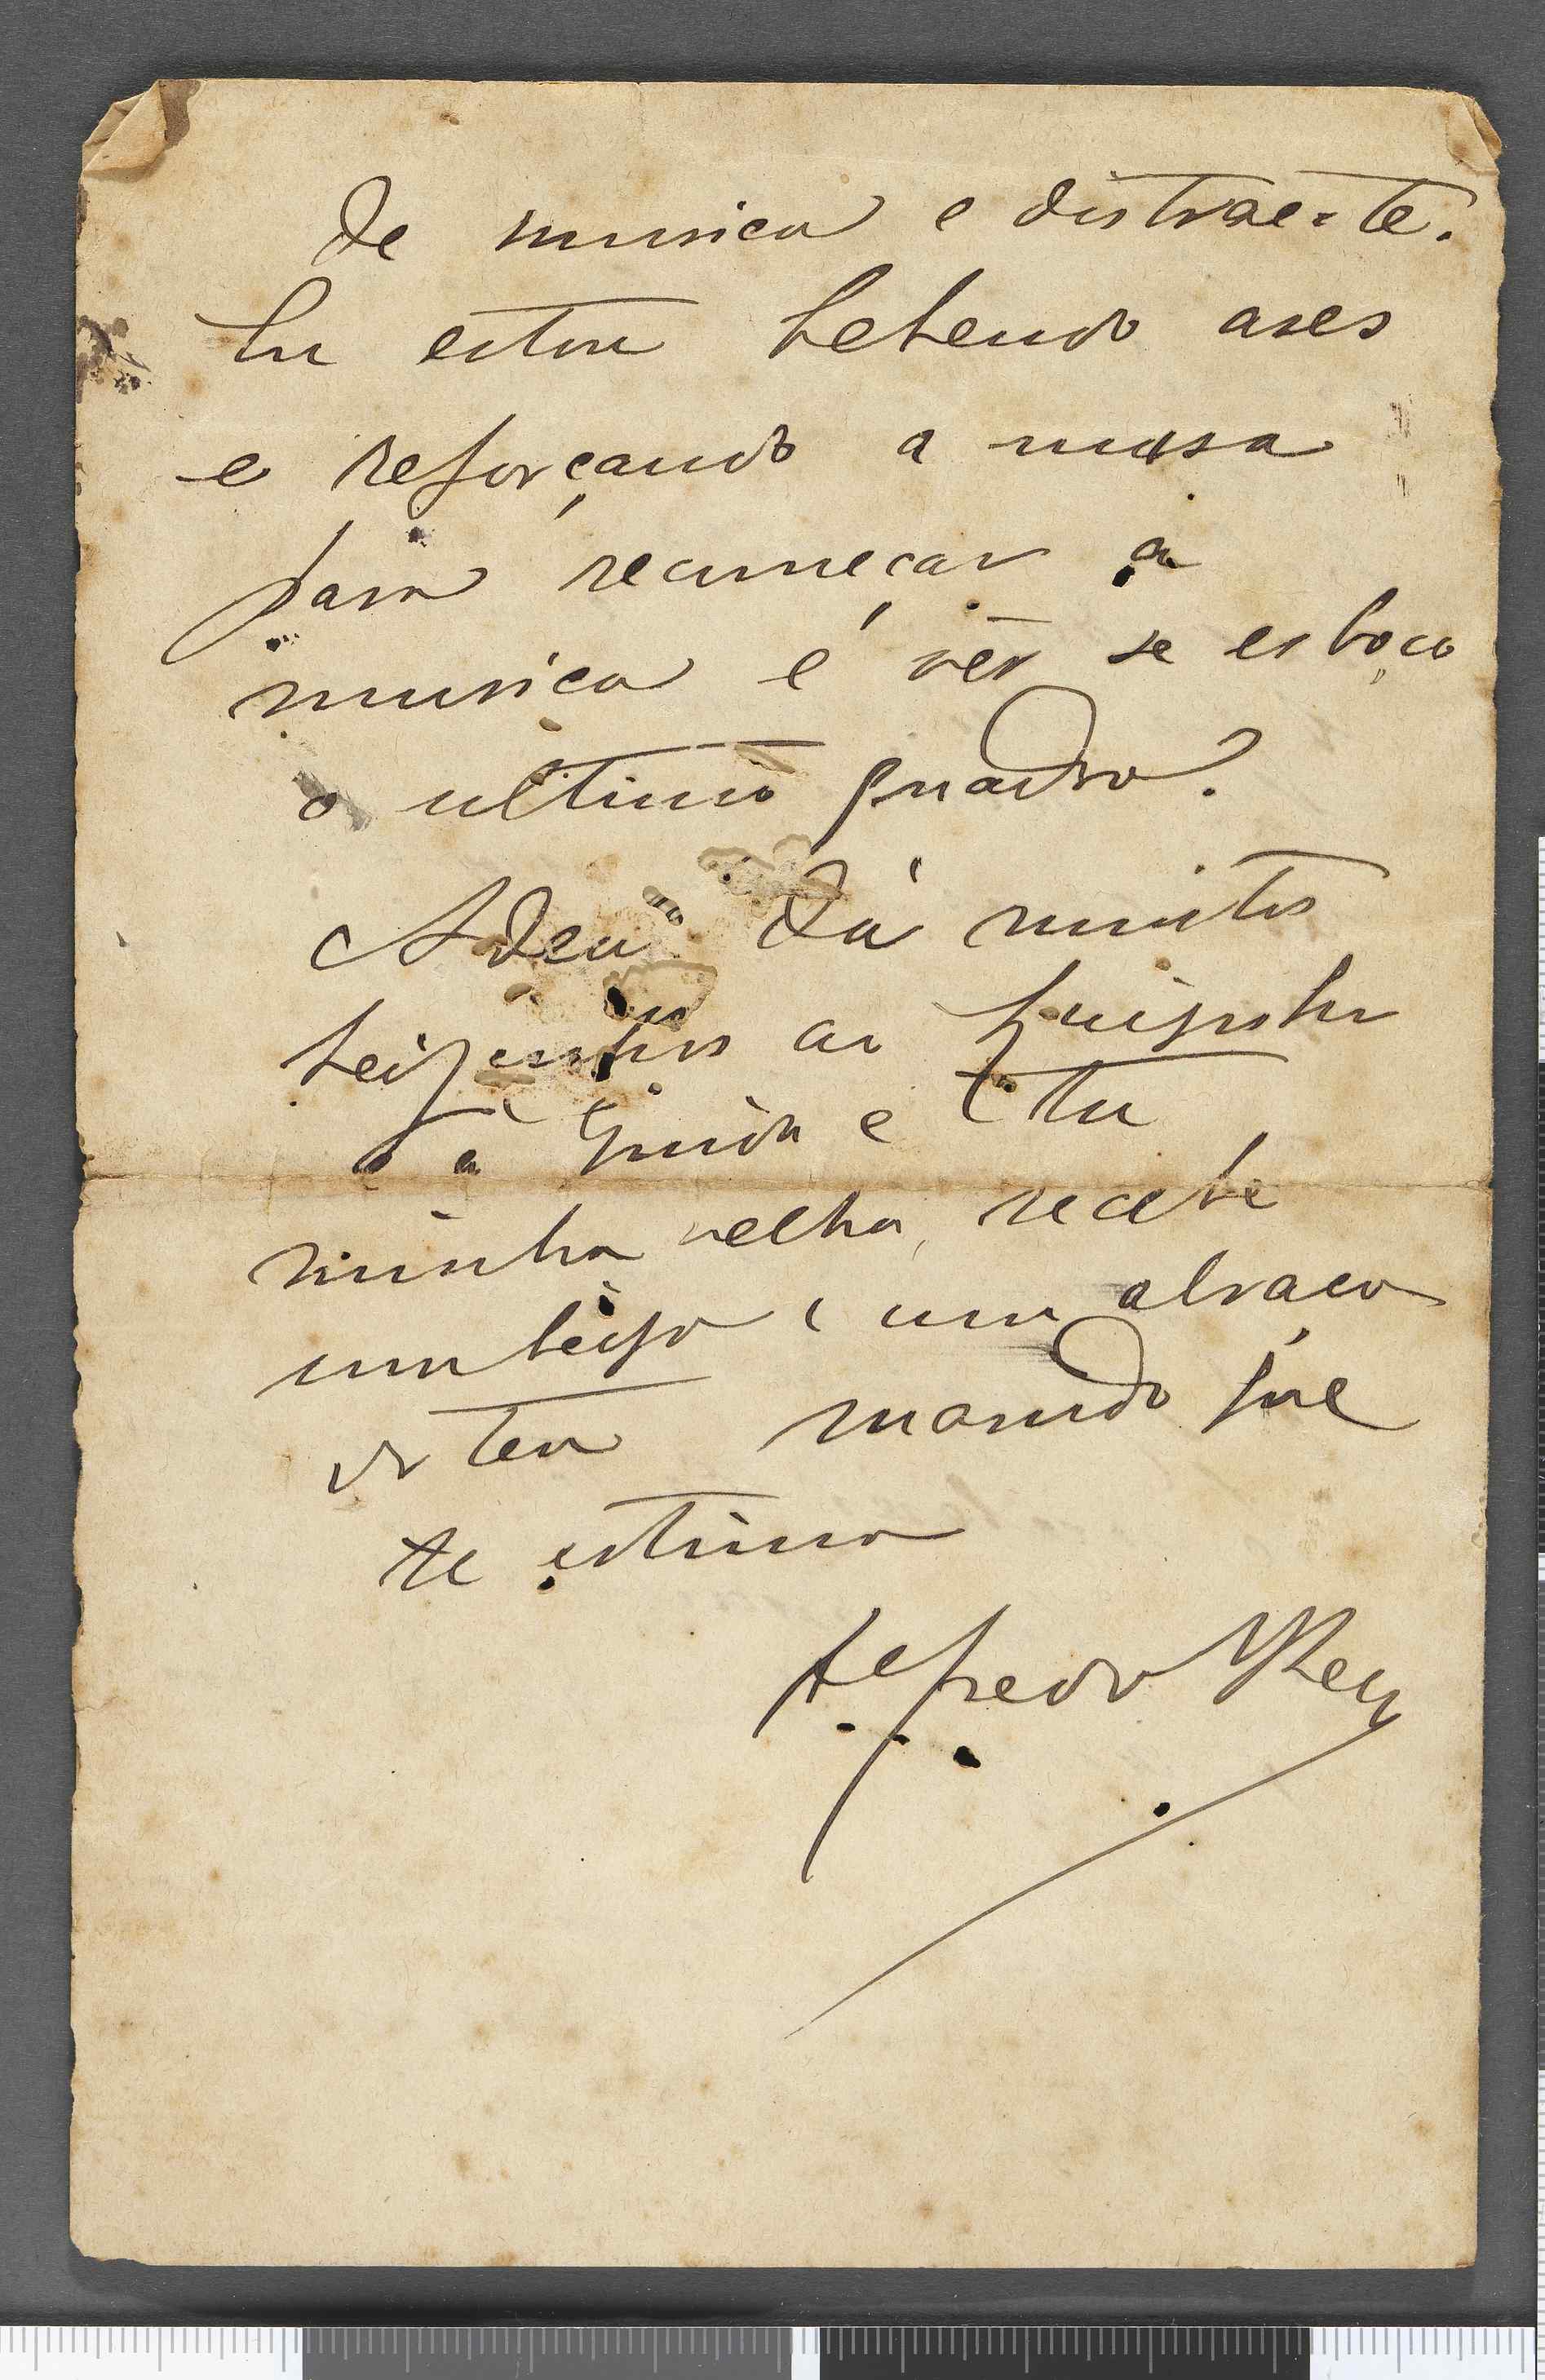 de musica e distrae-te.
Eu estou bebendo ares
e reforçando a musa
para recomeçar a
musica e vêr se esboço
o ultimo quadro.
Adeus Dá muitos
beijinhos ao
e á Guida e tu
minha velha, recebe
um beijo e um abraço
do teu marido que
te estima
Alfredo Keil